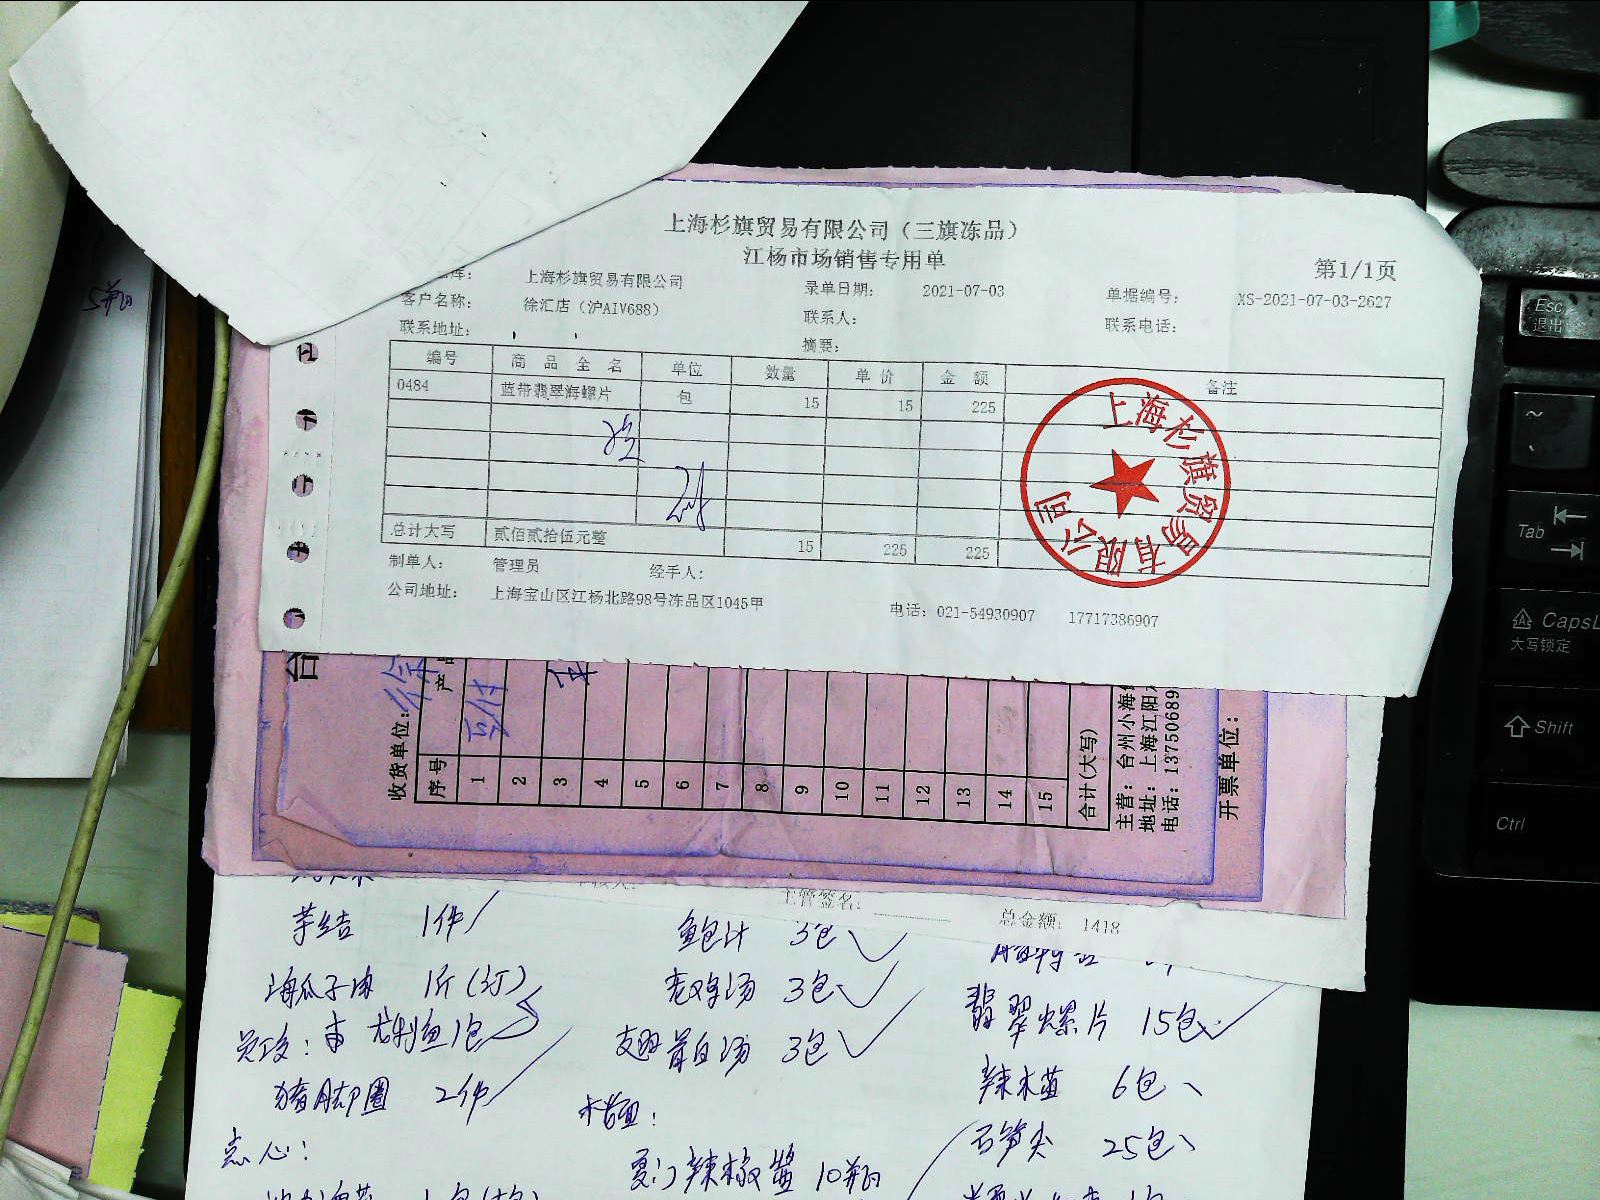 上海杉旗贸易有限公司（三旗冻品）
江杨市场销售专用单
第1/1页
库： 上海杉旗贸易有限公司 录单日期： 2021-07-03 单据编号： XS-2021-07-03-2627
客户名称： 徐汇店（沪AIV688） 联系人： 联系电话：
联系地址： 摘要：
编号 商品全名 单位 数量 单价 金额 备注
0484 蓝带翡翠海螺片 包 15 15 225
总计大写 贰佰贰拾伍元整 15 225 225
制单人： 管理员 经手人：
公司地址： 上海宝山区江杨北路98号冻品区1045甲 电话：021-54930907 17717386907
上海杉旗贸易有限公司
台
收货单位：
序号 产
1
2
3
4
5
6
7
8
9
10
11
12
13
14
15
合计(大写)
主营：台州小海
地址：上海江阳
电话：13750689
开票单位：
主管签名： 总金额： 1418
芋结 1件
海瓜子肉 1斤
猪脚圈 2件
点心：
鲍汁 3包
老鸡汤 3包
3包
厦门辣椒酱 10瓶
翡翠螺片 15包
辣木苗 6包
石笋尖 25包
5瓶
Esc
退出
Tab
CapsL
大写锁定
Shift
Ctrl